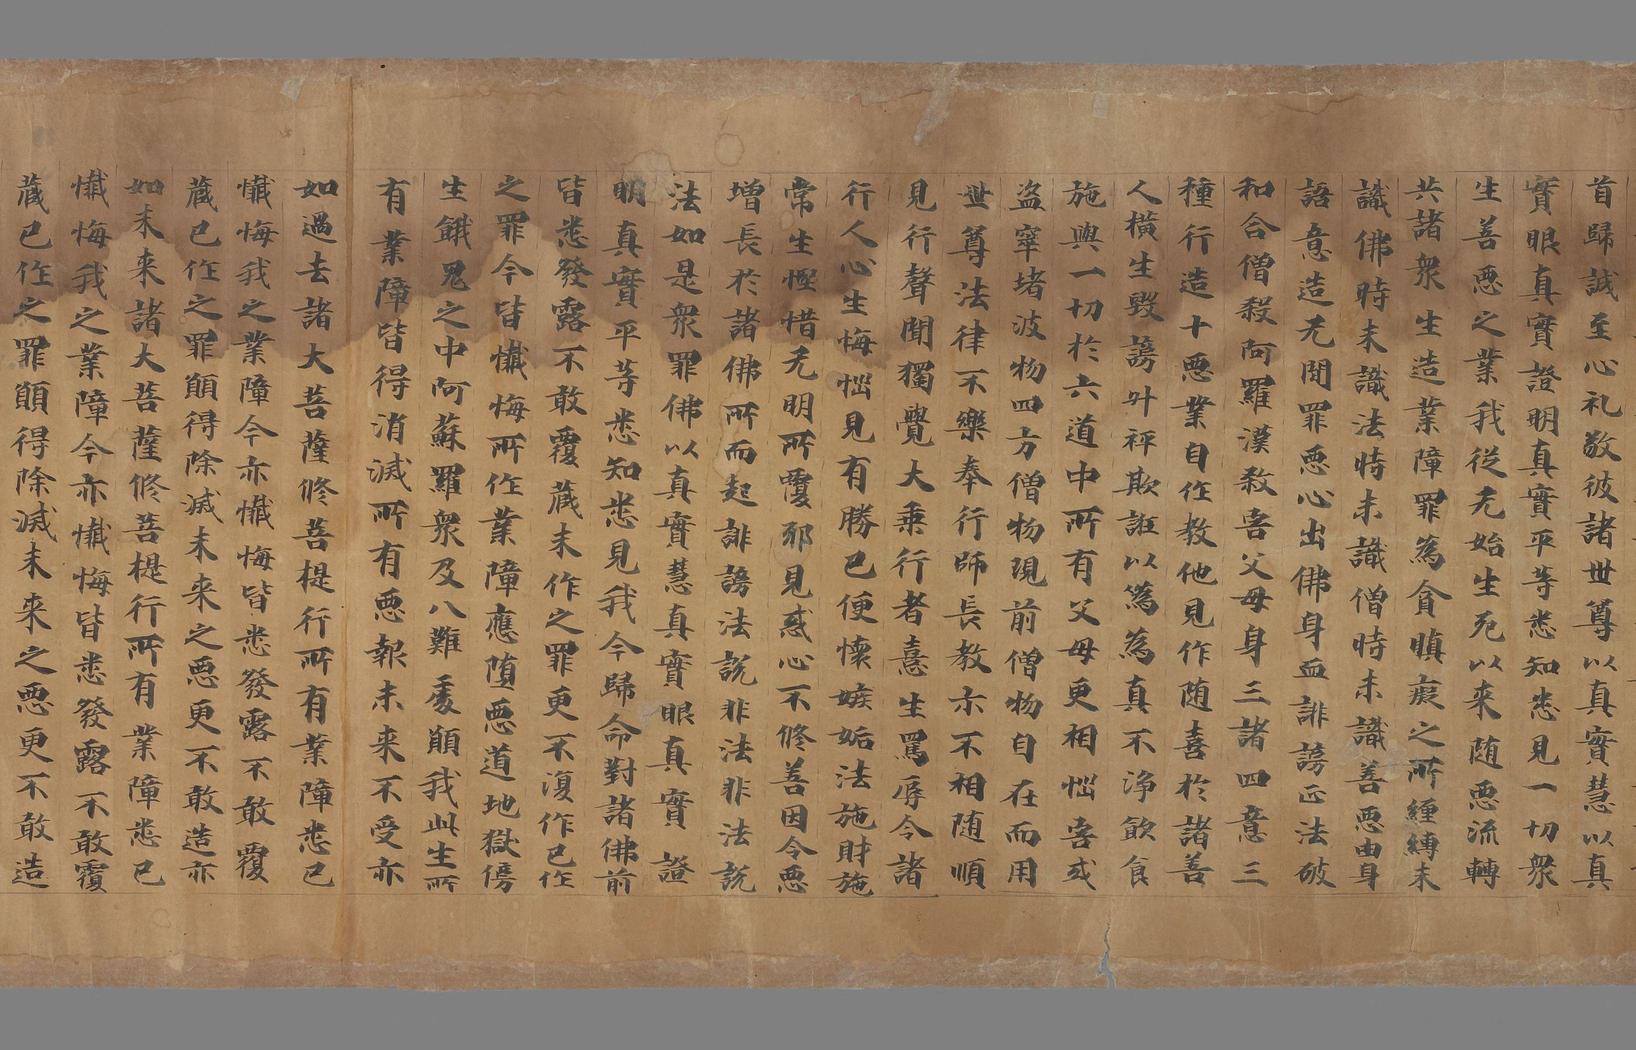 首歸誠至心礼敬彼諸世尊以真實慧以真
實眼真實證明真實平等悉知悉見一切衆
生善悪之業我従无始生死以来随悪流轉
共諸衆生造業障罪為貪瞋癡之所纏縛未
識佛時未識法時未識僧時未識善悪由身
語意造无間罪悪心出佛身血誹謗正法破
和合僧殺阿羅漢殺害父母身三諸四意三
種行造十悪業自作教他見作随喜於諸善
人横生毀謗升秤欺誑以為為真不浄飲食
施與一切於六道中所有父母更相惱害或
盗窣堵波物四方僧物現前僧物自在而用
世尊法律不樂奉行師長教示不相随順
見行聲聞獨覺大乗行者憙生罵辱令諸
行人心生悔惱見有勝已便懐嫉妬法施財施
常生慳惜无明所覆邪見惑心不修善因令悪
増長於諸佛所而起誹謗法説非法非法説
法如是衆罪佛以真實慧真實眼真實證
明真實平等悉知悉見我今歸命對諸佛前
皆悉發露不敢覆蔵未作之罪更不復作已作
之罪今皆懺悔所作業障應堕悪道地獄傍
生餓鬼之中阿蘇羅衆及八難處願我此生所
有業障皆得消滅所有悪報未来不受亦
如過去諸大菩薩修菩提行所有業障悉已
懺悔我之業障今亦懺悔皆悉發露不敢覆
蔵已作之罪願得除滅未来之悪更不敢造亦
如未来諸大菩薩修菩提行所有業障悉已
懺悔我之業障今亦懺悔皆悉發露不敢覆
蔵已作之罪願得除滅未来之悪更不敢造